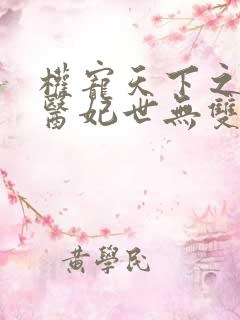 權寵天下之
醫妃世無雙
黃學民